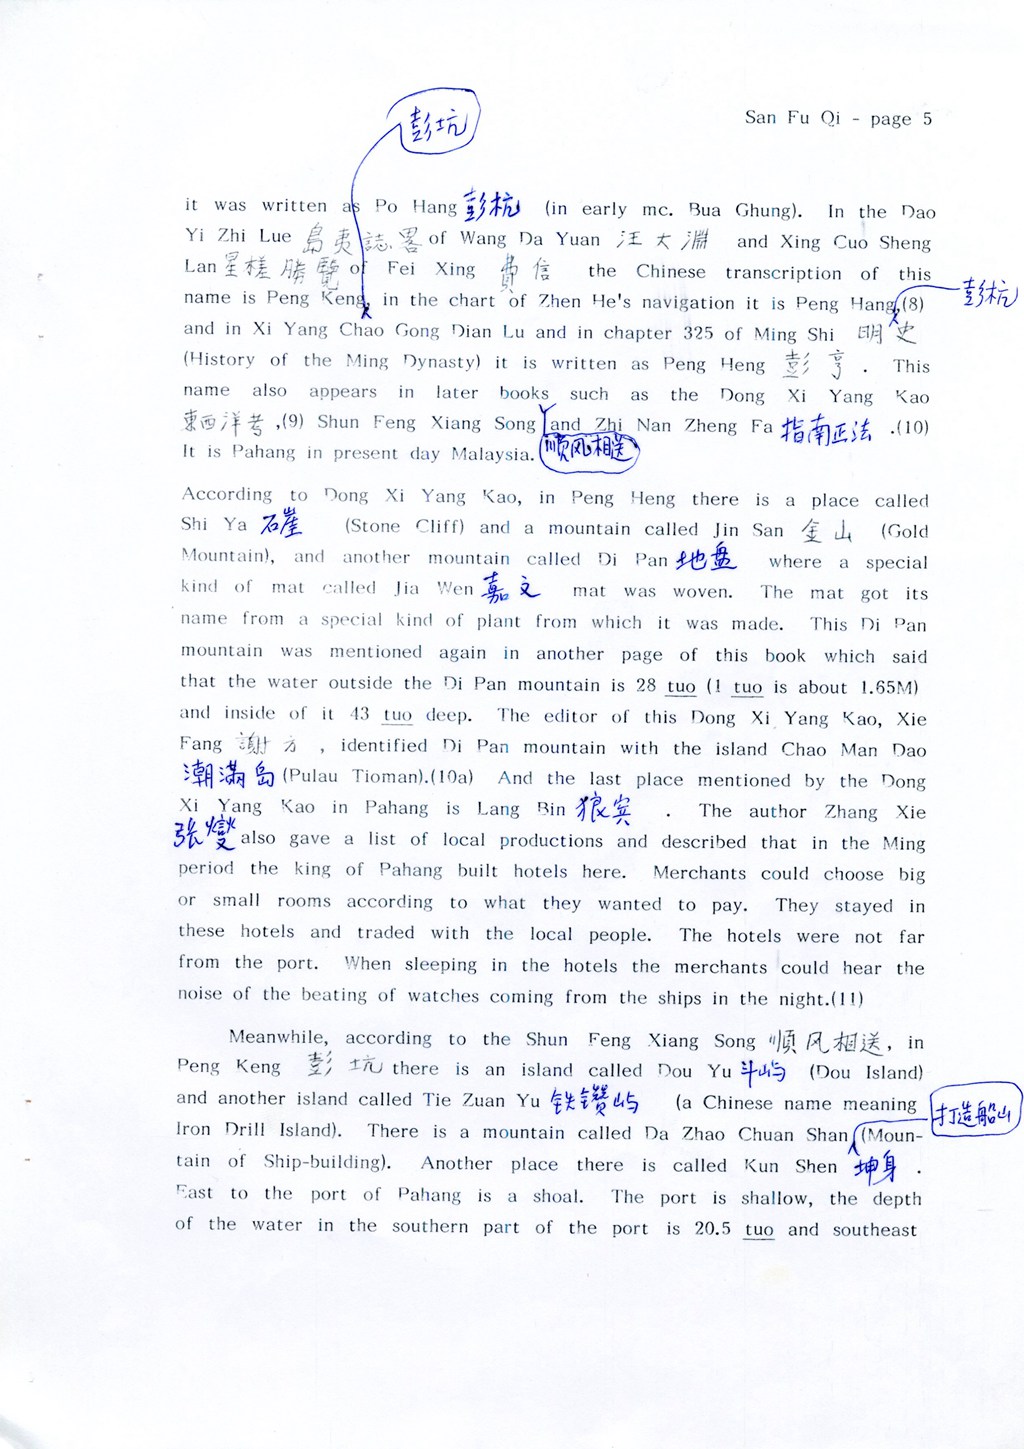 San Fu Qi - page 5
彭坑
it was written as Po Hang 彭杭 (in early mc. Bua Ghung). In the Dao
Yi Zhi Lue 島夷誌畧 of Wang Da Yuan 汪大淵 and Xing Cuo Sheng
Lan 星槎勝覽 of Fei Xing 費信 the Chinese transcription of this
name is Peng Keng, in the chart of Zhen He's navigation it is Peng Hang,(8) 彭杭
and in Xi Yang Chao Gong Dian Lu and in chapter 325 of Ming Shi 明史
(History of the Ming Dynasty) it is written as Peng Heng 彭亨 . This
name also appears in later books such as the Dong Xi Yang Kao
東西洋考 ,(9) Shun Feng Xiang Song and Zhi Nan Zheng Fa 指南正法 .(10)
It is Pahang in present day Malaysia. 順风相送
According to Dong Xi Yang Kao, in Peng Heng there is a place called
Shi Ya 石崖 (Stone Cliff) and a mountain called Jin San 金山 (Gold
Mountain), and another mountain called Di Pan 地盘 where a special
kind of mat called Jia Wen 嘉文 mat was woven. The mat got its
name from a special kind of plant from which it was made. This Di Pan
mountain was mentioned again in another page of this book which said
that the water outside the Di Pan mountain is 28 tuo (1 tuo is about 1.65M)
and inside of it 43 tuo deep. The editor of this Dong Xi Yang Kao, Xie
Fang 謝方 , identified Di Pan mountain with the island Chao Man Dao
潮滿岛 (Pulau Tioman).(10a) And the last place mentioned by the Dong
Xi Yang Kao in Pahang is Lang Bin 狼宾 . The author Zhang Xie
張燮 also gave a list of local productions and described that in the Ming
period the king of Pahang built hotels here. Merchants could choose big
or small rooms according to what they wanted to pay. They stayed in
these hotels and traded with the local people. The hotels were not far
from the port. When sleeping in the hotels the merchants could hear the
noise of the beating of watches coming from the ships in the night.(11)
Meanwhile, according to the Shun Feng Xiang Song 順风相送, in
Peng Keng 彭坑 there is an island called Dou Yu 斗屿 (Dou Island)
and another island called Tie Zuan Yu 铁鑽屿 (a Chinese name meaning
Iron Drill Island). There is a mountain called Da Zhao Chuan Shan (Moun- 打造船山
tain of Ship-building). Another place there is called Kun Shen 坤身 .
East to the port of Pahang is a shoal. The port is shallow, the depth
of the water in the southern part of the port is 20.5 tuo and southeast